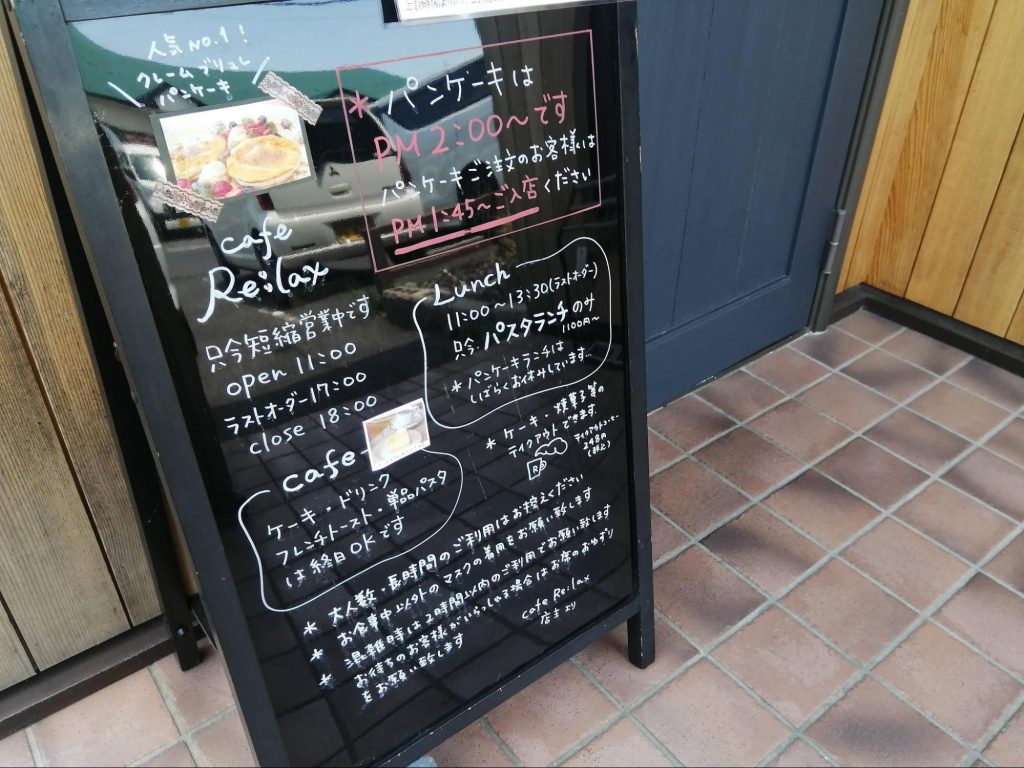 人気NO.1!
クレームブリュレ
パンケーキ
* パンケーキは
PM 2:00〜です
パンケーキご注文のお客様は
PM 1:45〜ご入店ください
cafe
Re:lax
只今短縮営業中です
open 11:00
ラストオーダー17:00
close 18:00
Lunch
11:00〜13:30(ラストオーダー)
只今パスタランチのみ
1100円〜
* パンケーキランチは
しばらくお休みしています...
cafe
ケーキ・ドリンク
フレンチトースト・単品パスタ
は終日OKです
* ケーキ・焼菓子等の
テイクアウトできます。
* 大人数・長時間のご利用はお控えください
お食事中以外のマスクの着用をお願い致します
* 混雑時は2時間以内のご利用でお願い致します
* お待ちのお客様がいらっしゃる場合はお席のおゆずり
をお願い致します
cafe Re:lax
店主より